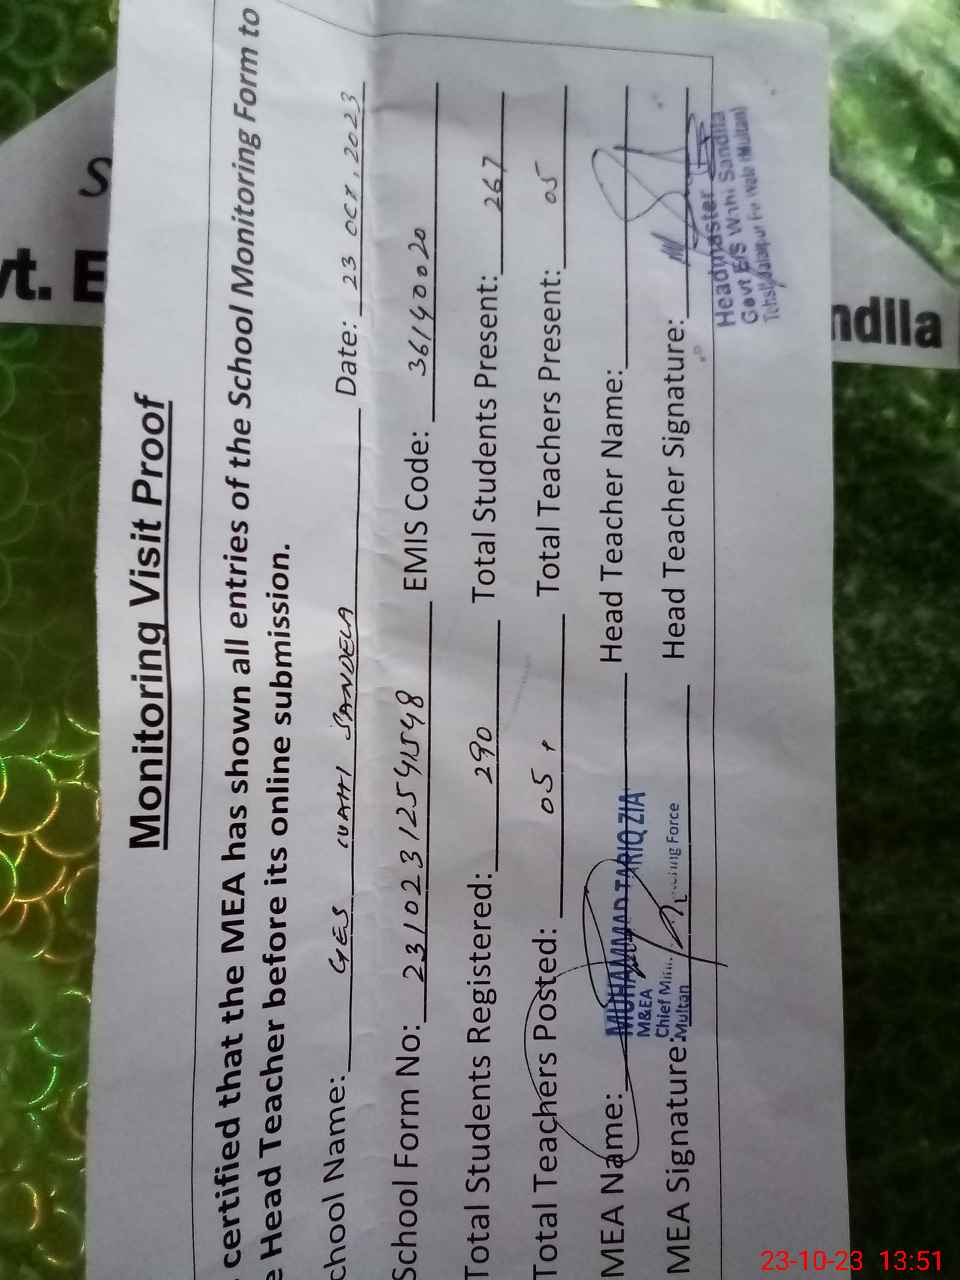 Monitoring Visit Proof
certified that the MEA has shown all entries of the School Monitoring Form to
e Head Teacher before its online submission.
chool Name: GES WAHI SANDELA Date: 23 OCT, 2023
School Form No: 231023125941548 EMIS Code: 36140020
Total Students Registered: 290 Total Students Present: 267
Total Teachers Posted: 05 Total Teachers Present: 05
MEA Name: MUHAMMAD TARIQ ZIA Head Teacher Name:
M&EA
Chief Force
Multan
MEA Signature: Head Teacher Signature:
Headmaster
Govt E/S Wahi Sandila
(Multan)
S
vt. E
ndila
23-10-23 13:51